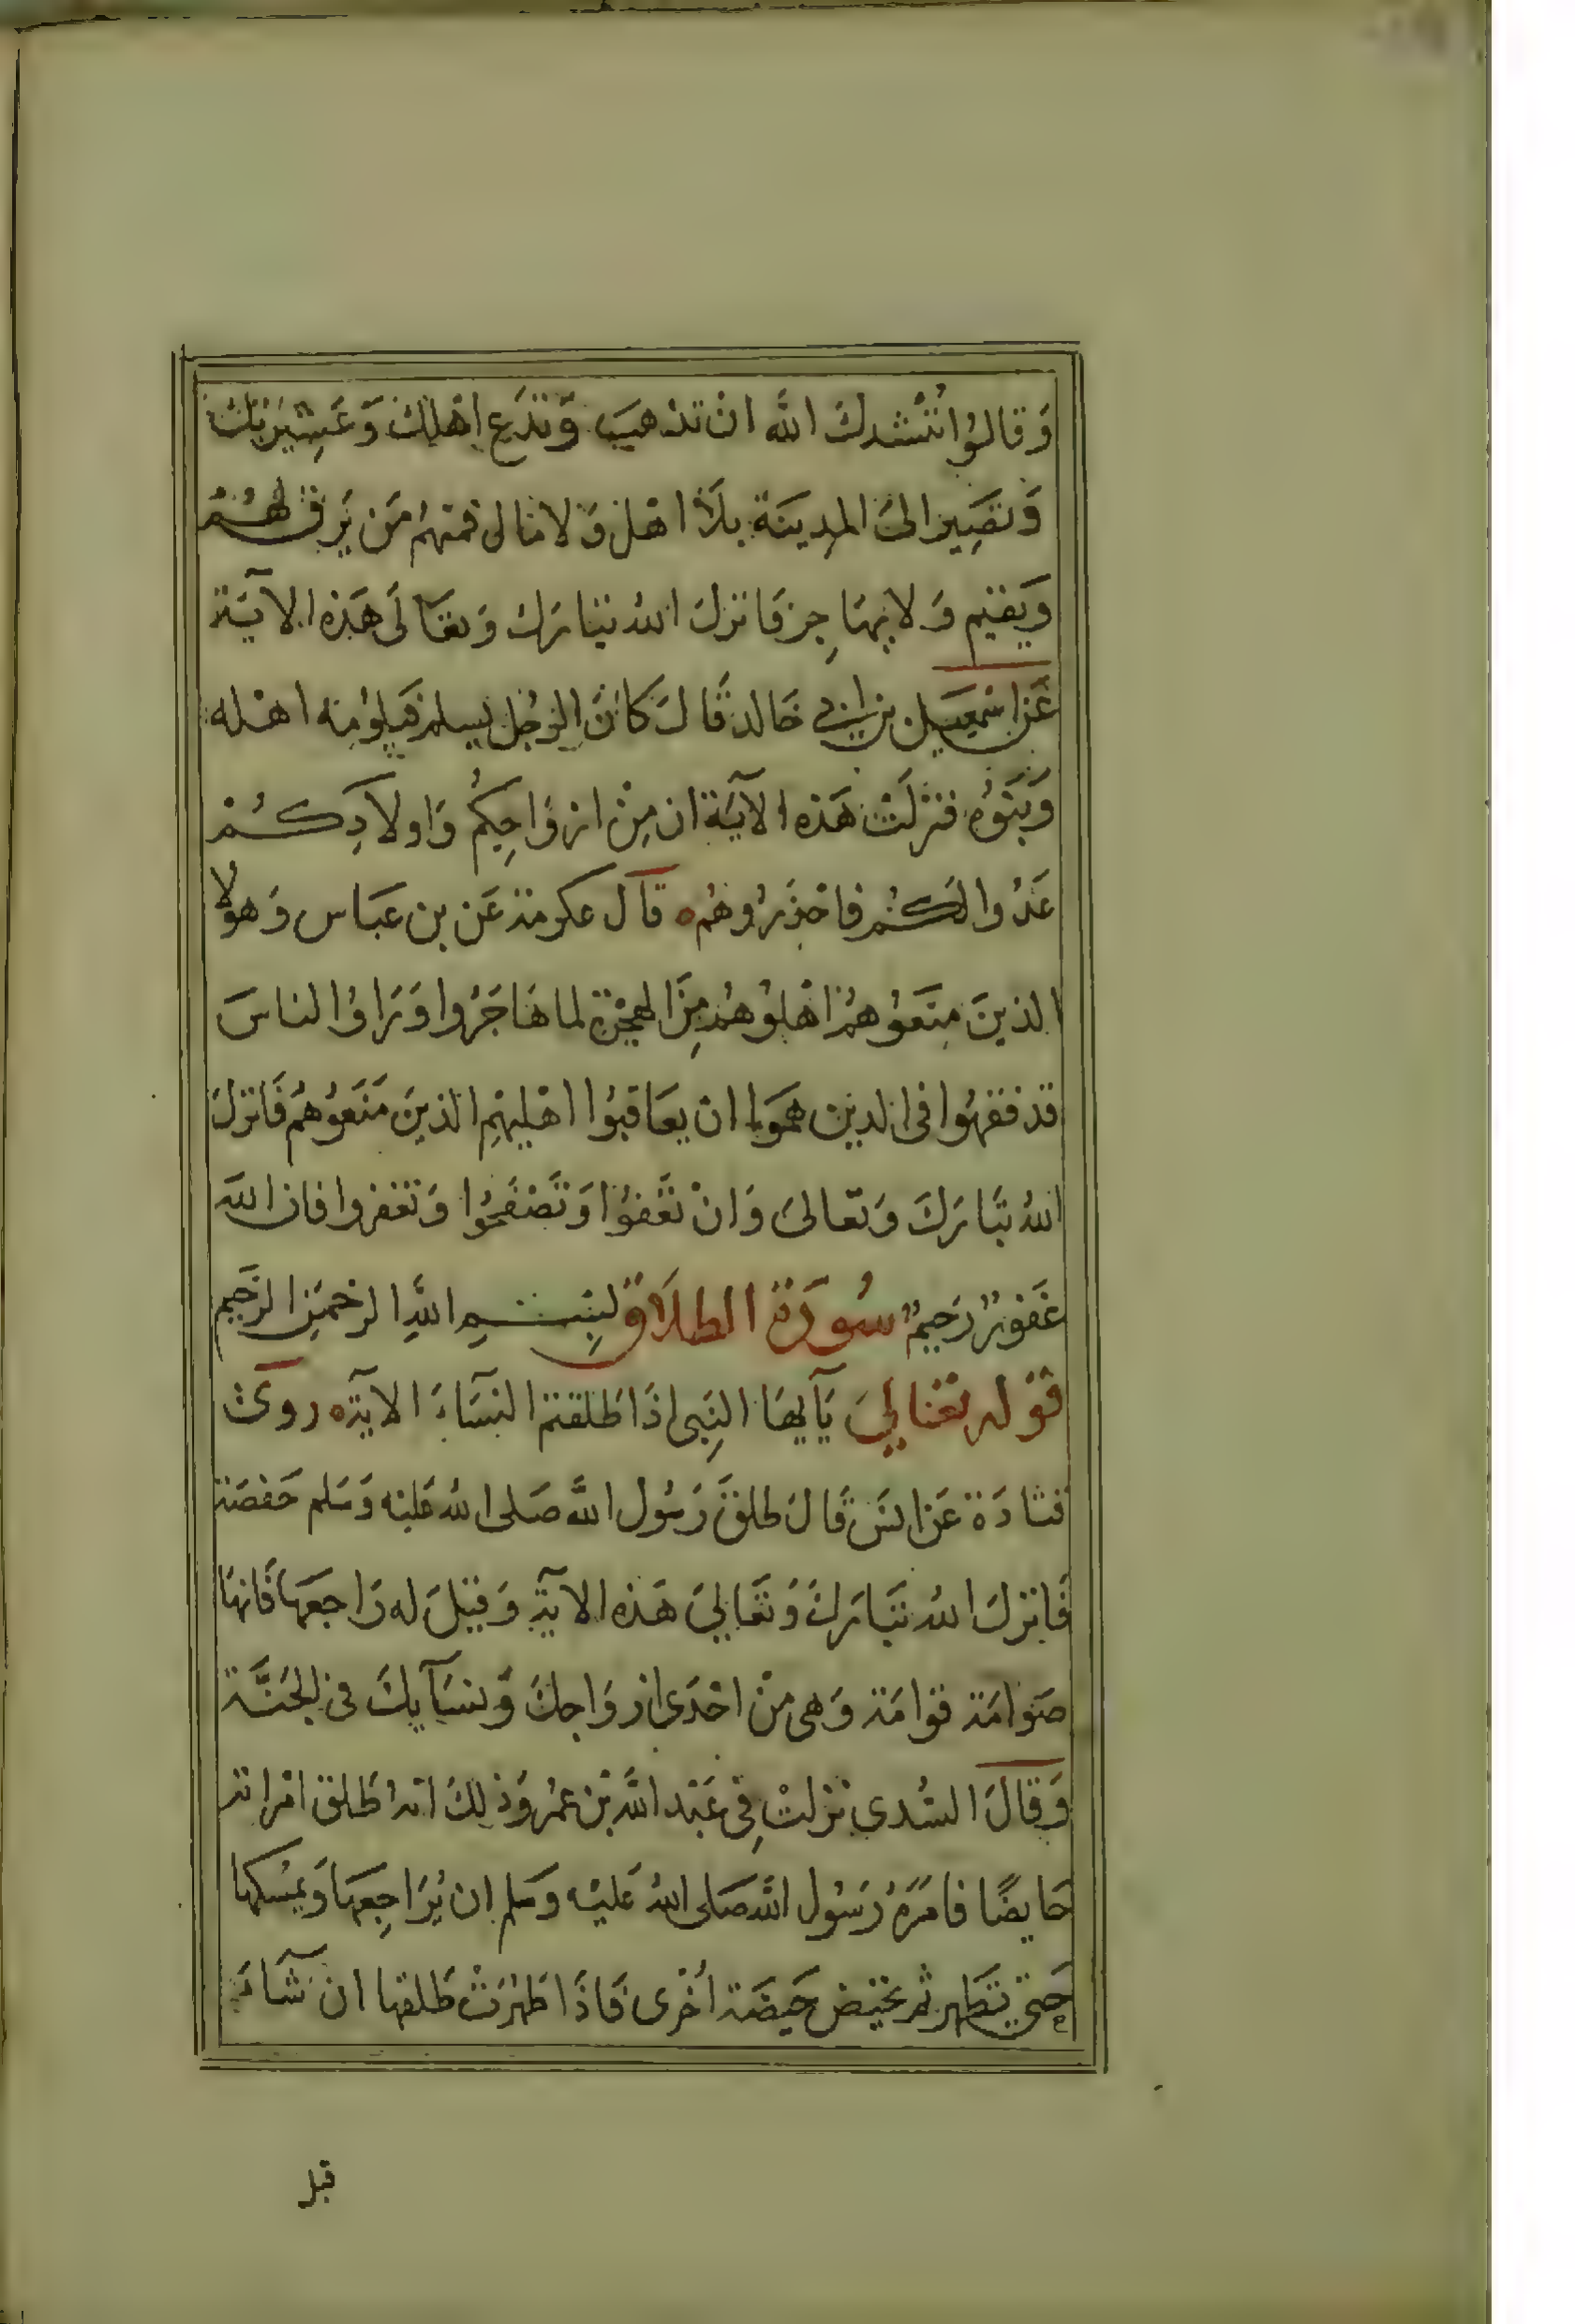 وَقالوُا نَنْشدكَ اللَّه ان تذهبَ وَّتدَع اهْلكَ وَّعَشِيْرَتكَ
وَتصَيِر الىَ المدِينَة بلاَ اهْل وَلا مَالى فمنهمْ مَن يَرق لهُمْ
وَيقيم وَلا يهَاجِر فَانزلَ اللهُ تبَارَك وَتعَالَى هَذه الآيَة
عَن اسْمعيَل بن ابى خَالد قَالَ كانَ الرجُل يسلم فَيلومُه اهْله
وَبَنوُه فنزلَتْ هَذه الآيَة ان مِنْ ازوَاجِكُم وَاولادِكُمْ
عَدُوا لَكُمْ فاحْذَرُوهُم ه قاَل عكرمة عَن بن عبَاس وَهولا
الذينَ مَنَعوُهمْ اهْلوُهُم مِنَ الهجْرَة لما هَاجَرُوا وَرَاوُا الناسَ
قد فقهوا فى الدين هموَا ان يعَاقبوُا اهْليهِم الذينَ مَنَعوُهم فَانزلَ
اللهُ تبَارَكَ وَتعَالىَ وَانْ تَعْفوُا وَتَصْفَحُوا وَتغفروا فان اللَّه
غَفورٌ رَحيمٌ سُورَة الطلاَق بِسْمِ اللهِ الرحْمَنِ الرَحِيم
قوْله تعَالىَ يَآيهَا النِبَى اذَا طَلقتم النسَاءَ الآية ه روىَ
قتادَة عَن انسَ قَالَ طلقَ رَسُول اللَّه صَلى اللهُ عَليْه وَسَلم حَفصَة
فَانزلَ اللهُ تبَارَكَ وَتعَالىَ هَذه الآيَة وَقيْلَ له رَاجعهَا فَانهَا
صَوامَة قوامَة وَهى منْ احْدَى ازوَاجكَ وَنسَآيكَ فى الجَنَّة
وَقالَ السُدى نزلتْ فِى عَبْد اللَّه بْن عمُر وَذلكَ انهُ طَلق امْراته
حَايضًا فامَرَهُ رَسُول اللَّه صَلى اللهُ عَليْه وَسَلم ان يُرَاجِعهَا وَيمْسكهَا
حَتى تَطهر ثم تحيْض حَيضَة اُخْرى فَاذَا طَهُرَتْ طَلقهَا ان شَآءَ
قبل